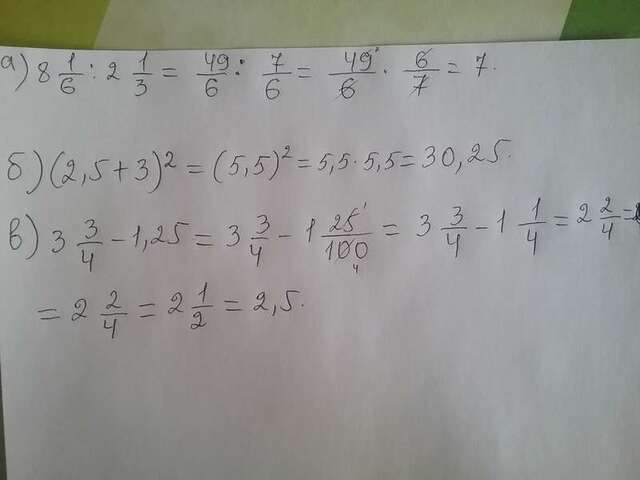 а) 8 1/6 : 2 1/3 = 49/6 : 7/6 = 49/6 · 6/7 = 7.
б) (2,5 + 3)² = (5,5)² = 5,5 · 5,5 = 30,25.
в) 3 3/4 - 1,25 = 3 3/4 - 1 25/100 = 3 3/4 - 1 1/4 = 2 2/4 =
= 2 2/4 = 2 1/2 = 2,5.